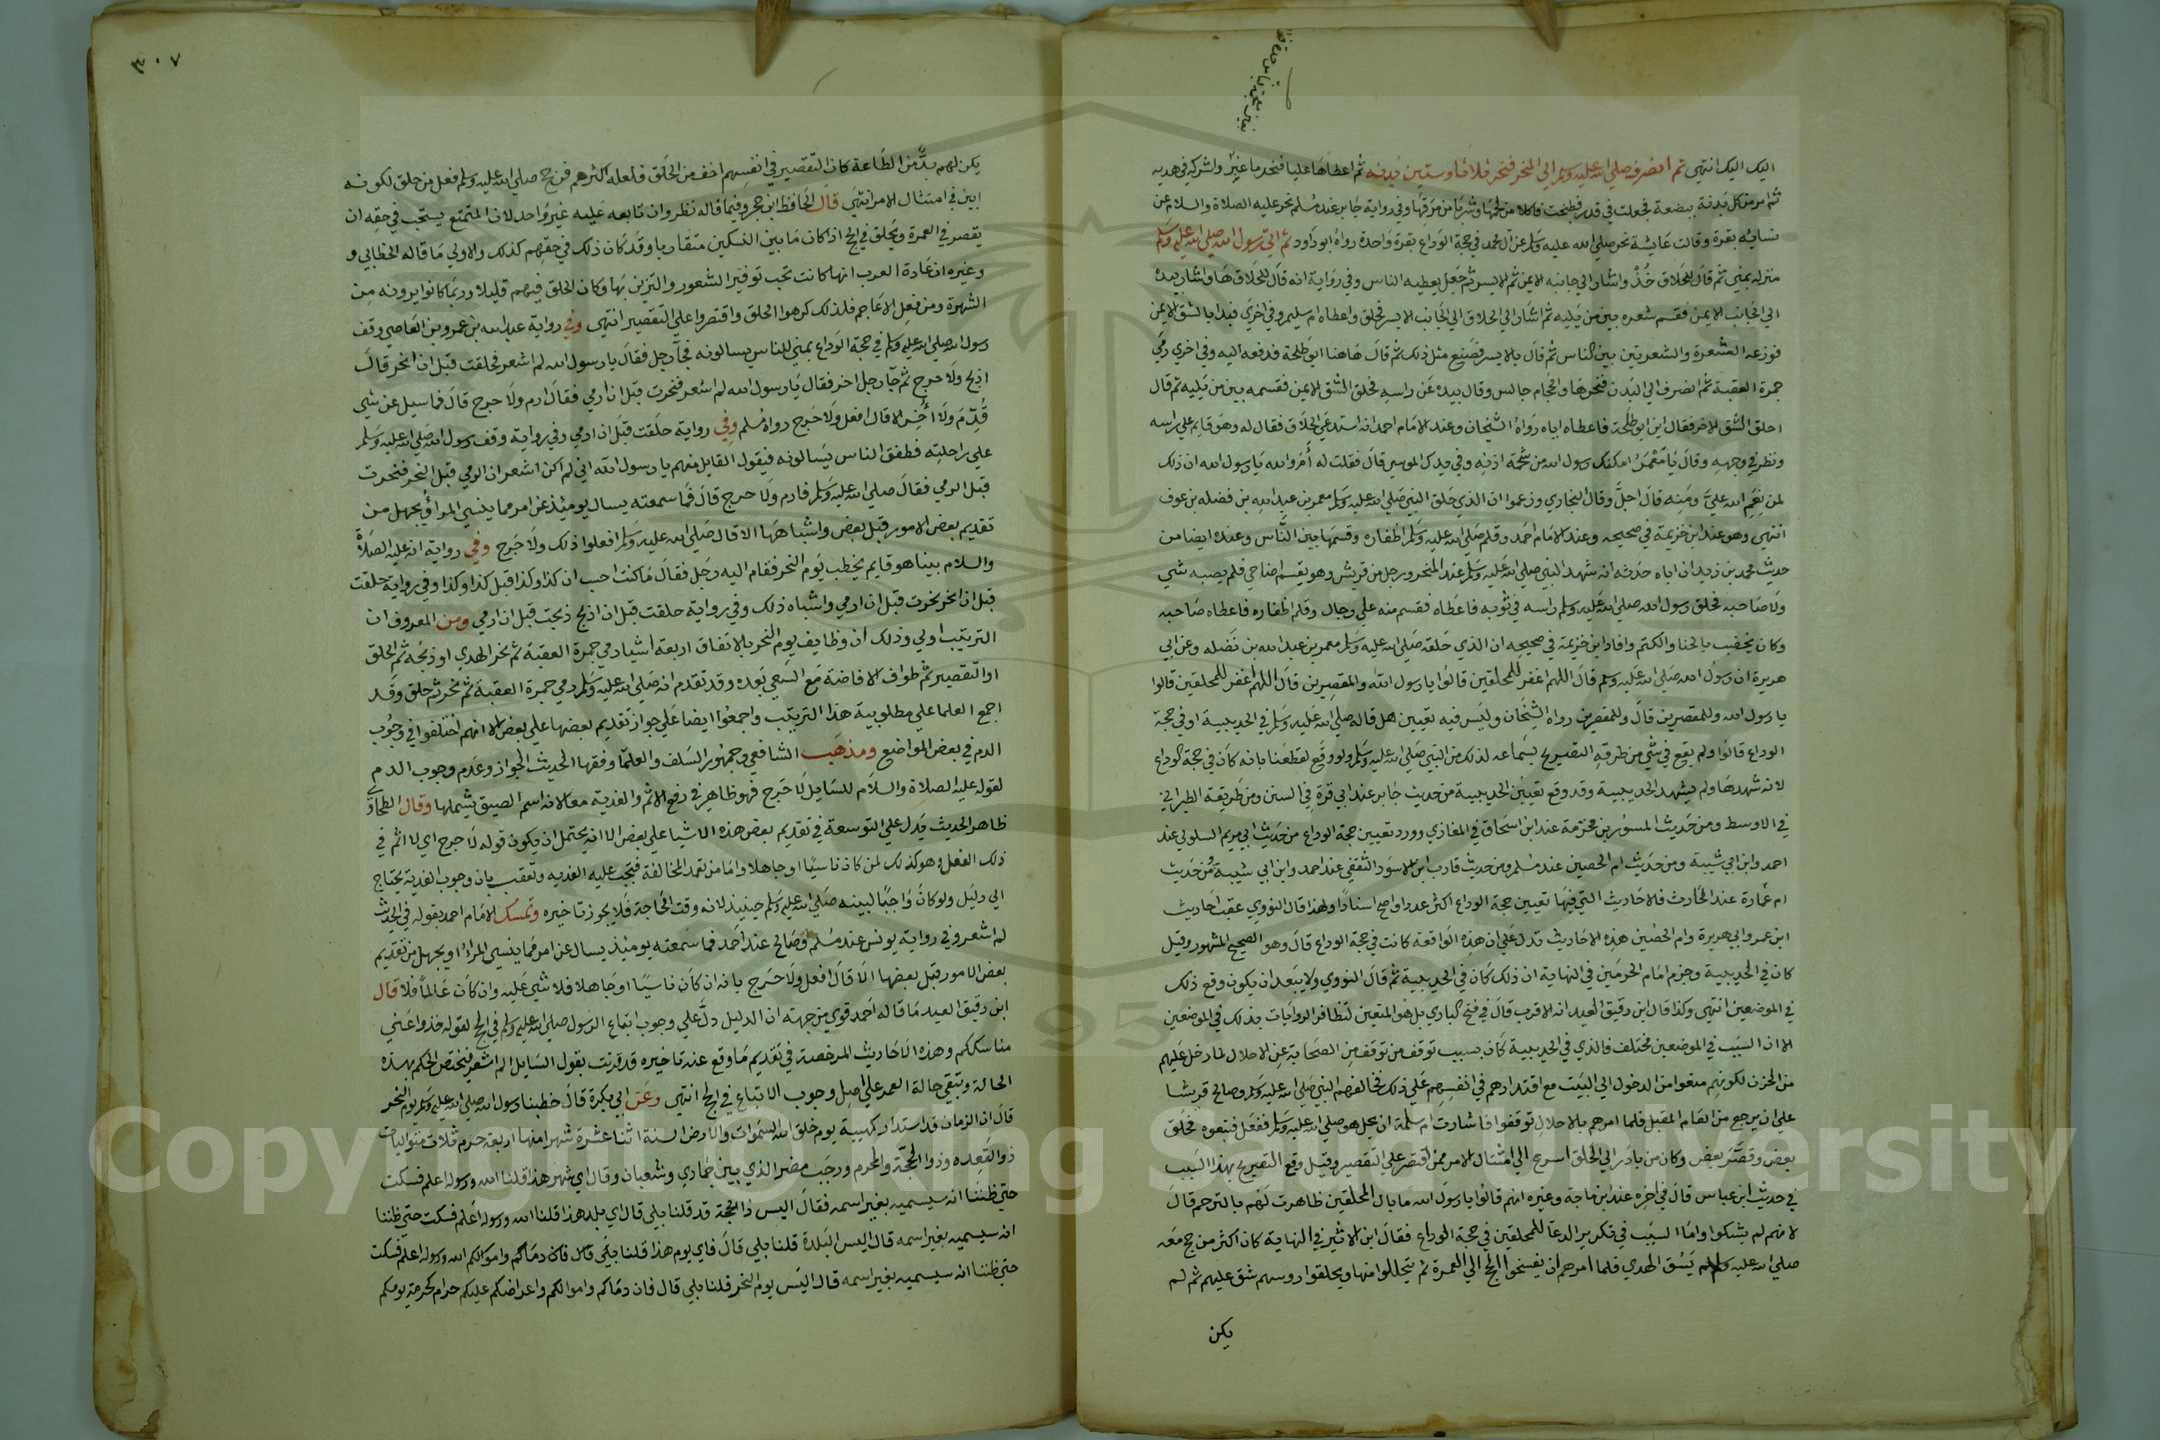 اليك اليك انتهى ثم انصرف صلى الله عليه وسلم الى المنحر فنحر ثلاثا وستين بدنه ثم اعطاها عليا فنحر ما غبر واشركه في هديه
ثم امر من كل بدنة ببضعة فجعلت في قدر فطبخت فاكلا من لحمها وشربا من مرقها وفي رواية جابر عند مسلم نحر عليه الصلاة والسلام عن
نسايه بقرة وقالت عايشة نحر صلى الله عليه وسلم عن ال محمد في حجة الوداع بقرة واحدة رواه ابوداود ثم اتي رسول الله صلى الله عليه وسلم
منزله بمنى ثم قال للحلاق خذ واشار الى جانبه الايمن ثم الايسر ثم جعل يعطيه الناس وفي رواية انه قال للحلاق ها واشار بيده
الى الجانب الايمن فقسم شعره بين من يليه ثم اشار الى الحلاق الى الجانب الايسر فحلق واعطاه ام سليم وفي اخرى فبدا بالشق الايمن
فوزعه الشعرة والشعرتين بين الناس ثم قال بالايسر فصنع مثل ذلك ثم قال هاهنا ابو طلحة فدفعه اليه وفي اخري رمي
جمرة العقبة ثم انصرف الى البدن فنحرها والحجام جالس وقال بيده عن راسه فحلق الشق الايمن فقسمه بين من يليه ثم قال
احلق الشق الاخر فقال اين ابو طلحة فاعطاه اياه رواه الشيخان وعند الامام احمد انه استدعي الحلاق فقال له وهو قايم علي راسه
ونظر في وجهه وقال يا معمر امكنك رسول الله من شحمة اذنه وفي يدك الموسي قال فقلت له أما والله يا رسول الله ان ذلك
لمن نعم الله علي ومنه قال اجل وقال البخاري وزعموا ان الذي حلق النبي صلى الله عليه وسلم معمر بن عبد الله بن فضله بن عوف
انتهى وهو عند ابن خزيمة في صحيحه وعند الامام احمد وقلم صلى الله عليه وسلم اظفاره وقسمها بين الناس وعنده ايضا من
حديث محمد بن زيد ان اباه حدثه انه شهد النبي صلى الله عليه وسلم عند المنحر ورجل من قريش وهو يقسم اضاحي فلم يصبه شي
ولا صاحبه فحلق رسول الله صلى الله عليه وسلم راسه في ثوبه فاعطاه فقسم منه علي رجال وقلم اظفاره فاعطاه صاحبه
وكان يخضب بالحنا والكتم وافاد ابن خزيمة في صحيحه ان الذي حلقه صلى الله عليه وسلم معمر بن عبد الله بن نضله وعن ابي
هريرة ان رسول الله صلى الله عليه وسلم قال اللهم اغفر للمحلقين قالوا يا رسول الله والمقصرين قال اللهم اغفر للمحلقين قالوا
يا رسول الله وللمقصرين قال وللمقصرين رواه الشيخان وليس فيه تعيين هل قاله صلى الله عليه وسلم في الحديبية او في حجة
الوداع قالوا ولم يقع في شي من طرقه التصريح بسماعه لذلك من النبي صلى الله عليه وسلم ولو وقع لقطعنا بانه كان في حجة الوداع
لانه شهدها ولم يشهد الحديبية وقد وقع تعيين الحديبية من حديث جابر عند ابي قرة في السنن ومن طريقه الطبراني
في الاوسط ومن حديث المسور بن مخرمة عند ابن اسحاق في المغازي وورد تعيين حجة الوداع من حديث ابي مريم السلولي عند
احمد وابن ابي شيبة ومن حديث ام الحصين عند مسلم ومن حديث قارب ابن الاسود الثقفي عند احمد وابن ابي شيبة ومن حديث
ام عمارة عند الحارث فالاحاديث التي فيها تعيين حجة الوداع اكثر عددا واصح اسنادا ولهذا قال النووي عقب احاديث
ابن عمر وابي هريرة وام الحصين هذه الاحاديث تدل علي ان هذه الواقعة كانت في حجة الوداع قال وهو الصحيح المشهور وقيل
كان في الحديبية وجزم امام الحرمين في النهاية ان ذلك كان في الحديبية ثم قال النووي ولا يبعد ان يكون وقع ذلك
في الموضعين انتهى وكذا قال ابن دقيق العيد انه الاقرب قال في فتح الباري بل هو المتعين لتظافر الروايات بذلك في الموضعين
الا ان السبب في الموضعين مختلف فالذي في الحديبية كان بسبب توقف من توقف من الصحابة عن الاحلال لما دخل عليهم
من الحزن لكونهم منعوا من الدخول الى البيت مع اقتدارهم في انفسهم علي ذلك فخالفهم النبي صلى الله عليه وسلم وصالح قريشا
علي ان يرجع من العام المقبل فلما امرهم بالاحلال توقفوا فاشارت ام سلمة ان يحل هو صلى الله عليه وسلم ففعل فتبعوه فحلق
بعض وقصر بعض وكان من بادر الى الحلق اسرع الى امتثال الامر ممن اقتصر علي التقصير وقيل وقع التصريح بهذا السبب
في حديث ابن عباس قال في اخره عند ابن ماجة وغيره انهم قالوا يا رسول الله ما بال المحلقين ظاهرت لهم بالترحم قال
لانهم لم يشكوا واما السبب في تكرير الدعا للمحلقين في حجة الوداع فقال ابن الاثير في النهاية كان اكثر من حج معه
صلى الله عليه وسلم لم يسق الهدي فلما امرهم ان يفسخوا الحج الى العمرة ثم يتحللوا منها ويحلقوا روسهم شق عليهم ثم لم
يكن
٣٠٧
يكن لهم بد من الطاعة كان التقصير في انفسهم اخف من الحلق ففعله اكثرهم فرجح صلى الله عليه وسلم فعل من حلق لكونه
ابين في امتثال الامر انتهى قال الحافظ ابن حجر وفيما قاله نظر وان تابعه عليه غير واحد لان المتمتع يستحب في حقه ان
يقصر في العمرة ويحلق في الحج اذا كان ما بين النسكين متقاربا وقد كان ذلك في حقهم كذلك والاولي ما قاله الخطابي و
وغيره ان عادة العرب انها كانت تحب توفير الشعور والتزين بها وكان الحلق فيهم قليلا وربما كانوا يرونه من
الشهرة ومن فعل الاعاجم فلذلك كرهوا الحلق واقتصروا علي التقصير انتهى وفي رواية عبد الله بن عمرو بن العاصي وقف
رسول الله صلى الله عليه وسلم في حجة الوداع بمني للناس يسالونه فجآ رجل فقال يا رسول الله لم اشعر فحلقت قبل ان انحر قال
اذبح ولا حرج ثم جا رجل اخر فقال يا رسول الله لم اشعر فنحرت قبل ان ارمي فقال ارم ولا حرج قال فما سيل عن شي
قُدّم ولا أخّر الا قال افعل ولا حرج رواه مسلم وفي رواية حلقت قبل ان ارمي وفي رواية وقف رسول الله صلى الله عليه وسلم
علي راحلته فطفق الناس يسالونه فيقول القايل منهم يا رسول الله اني لم اكن اشعر ان الرمي قبل النحر فنحرت
قبل الرمي فقال صلى الله عليه وسلم فارم ولا حرج قال فما سمعته يسال يوميذ عن امر مما ينسي المرأ ويجهل من
تقديم بعض الامور قبل بعض واشباهها الا قال صلى الله عليه وسلم افعلوا ذلك ولا حرج وفي رواية انه عليه الصلاة
والسلام بينا هو قايم يخطب يوم النحر فقام اليه رجل فقال ما كنت احسب ان كذا وكذا قبل كذا وكذا وفي رواية حلقت
قبل ان انحر نحرت قبل ان ارمي واشباه ذلك وفي رواية حلقت قبل ان اذبح ذبحت قبل ان ارمي ومن المعروف ان
الترتيب اولي وذلك ان وظايف يوم النحر بالاتفاق اربعة اشيا رمي جمرة العقبة ثم نحر الهدي او ذبحه ثم الحلق
او التقصير ثم طواف الافاضة مع السعي بعده وقد تقدم انه صلى الله عليه وسلم رمي جمرة العقبة ثم نحر ثم حلق وقد
اجمع العلما علي مطلوبية هذا الترتيب واجمعوا ايضا علي جواز تقديم بعضها علي بعض الا انهم اختلفوا في وجوب
الدم في بعض المواضع ومذهب الشافعي وجمهور السلف والعلما وفقها الحديث الجواز وعدم وجوب الدم
لقوله عليه الصلاة والسلام للسايل لا حرج فهو ظاهر في رفع الاثم والفدية معا لان اسم الضيق يشملها وقال الطحاوي
ظاهر الحديث يدل علي التوسعة في تقديم بعض هذه الاشيا علي بعض الا انه يحتمل ان يكون قوله لا حرج اي لا اثم في
ذلك الفعل وهو كذلك لمن كان ناسيا او جاهلا واما من تعمد المخالفة فتجب عليه الفديه وتعقب بان وجوب الفدية يحتاج
الي دليل ولو كان واجبا لبينه صلى الله عليه وسلم حينيذ لانه وقت الحاجة فلا يجوز تاخيره وتمسك الامام احمد بقوله في الحديث
لم اشعر وفي رواية يونس عند مسلم وصالح عند احمد فما سمعته يوميذ يسال عن امر مما ينسي المراء او يجهل من تقديم
بعض الامور قبل بعضها الا قال افعل ولا حرج بانه ان كان ناسيا او جاهلا فلا شي عليه وان كان عالما فلا قال
ابن دقيق العيد ما قاله احمد قوي من جهته ان الدليل دل علي وجوب اتباع الرسول صلى الله عليه وسلم في الحج لقوله خذوا عني
مناسككم وهذه الاحاديث المرخصة في تقديم ما وقع عنه تاخيره قد قرنت بقول السايل لم اشعر فيختص الحكم بهذه
الحالة وتبقي حالة العمد علي اصل وجوب الاتباع في الحج انتهى وعن ابي بكرة قال خطبنا رسول الله صلى الله عليه وسلم يوم النحر
قال ان الزمان قد استدار كهيية يوم خلق الله السموات والارض السنة اثنا عشرة شهرا منها اربعة حرم ثلاث متواليات
ذو القعده وذو الحجة والمحرم ورجب مضر الذي بين جمادي وشعبان وقال اي شهر هذا قلنا الله ورسوله اعلم فسكت
حتى ظننا انه سيسميه بغير اسمه فقال اليس ذا الحجة قد قلنا بلي قال اي بلد هذا قلنا الله ورسوله اعلم فسكت حتى ظننا
انه سيسميه بغير اسمه قال اليس البلدة قلنا بلي قال فاي يوم هذا قلنا الله ورسوله اعلم فسكت
حتى ظننا انه سيسميه بغير اسمه قال اليس يوم النحر قلنا بلي قال فان دماكم واموالكم واعراضكم عليكم حرام كحرمة يومكم
Copyright © King Saud University